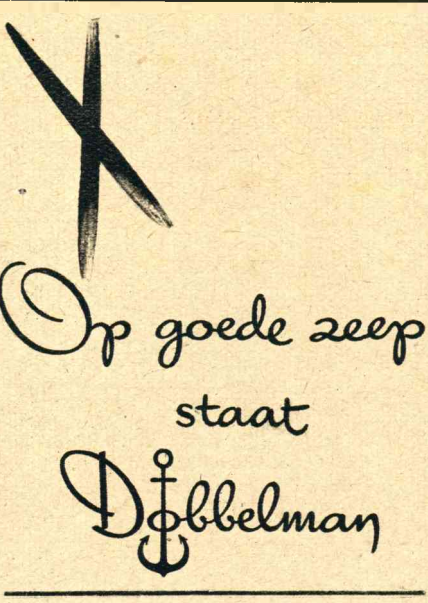 Op goede zeep
staat
Dobbelman